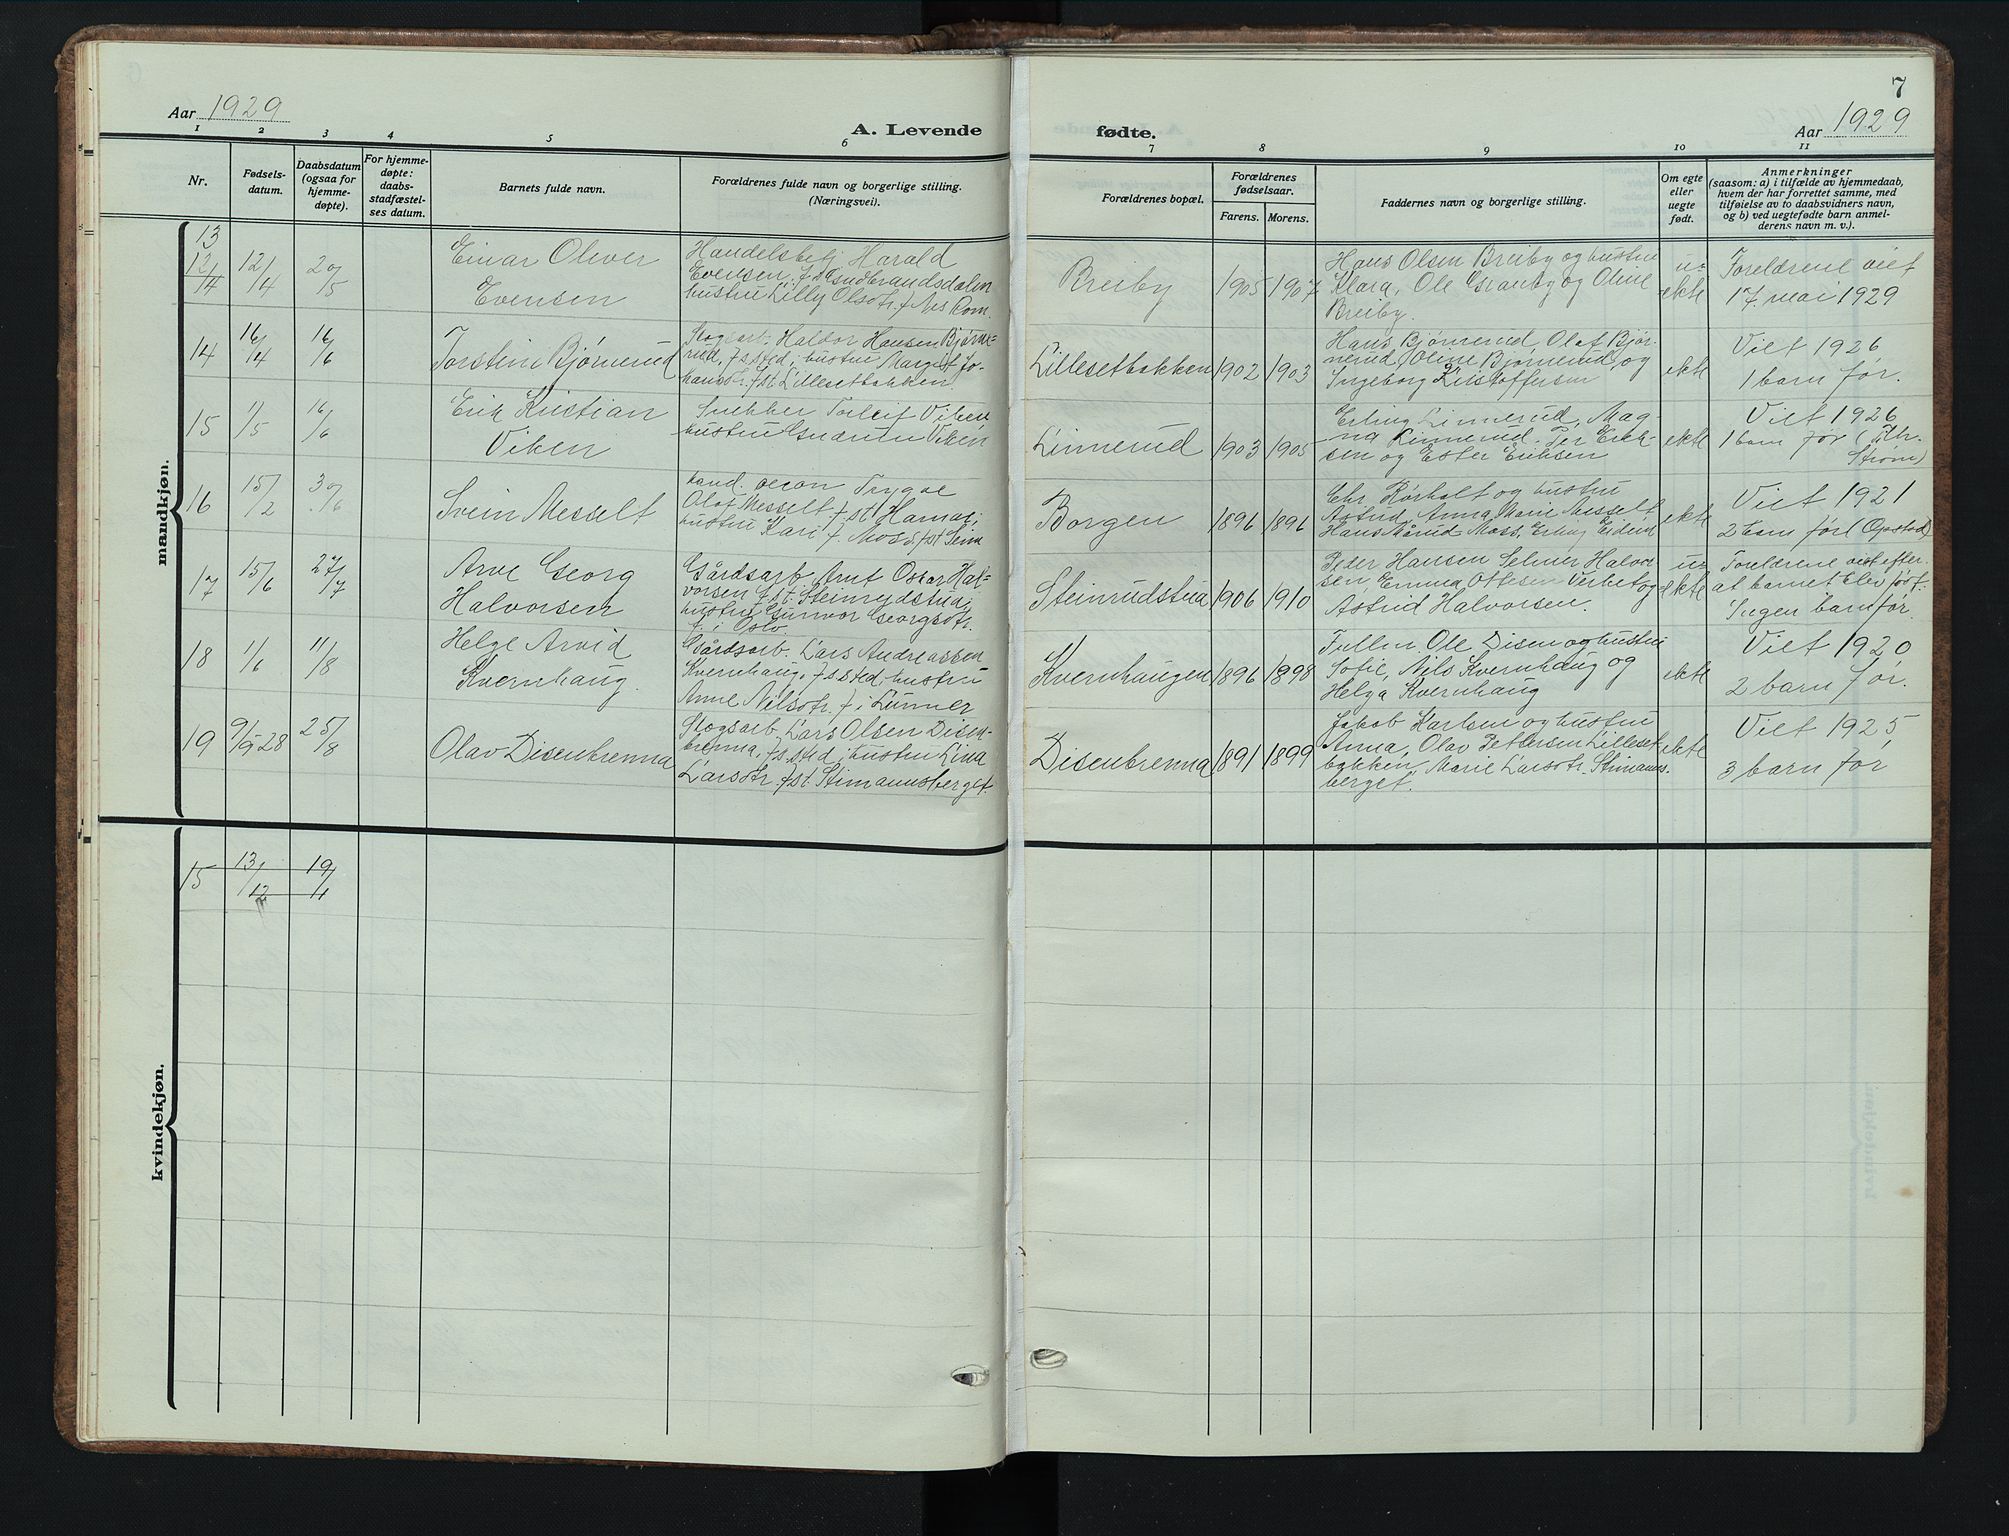 Aar 1929
A. Levende
1 2 3 4 5 6
Nr.
Fødsels-
datum.
Daabsdatum
(ogsaa for
hjemme-
døpte).
For hjemme-
døpte:
daabs-
stadfæstel-
ses datum.
Barnets fulde navn.
Forældrenes fulde navn og borgerlige stilling.
(Næringsvei).
mandkjøn.
13
12/4
12/4
20/5
Einar Oliver
Evensen
Handelsbetj. Harald
Evensen. f. i Gudbrandsdalen
hustru Lilly Olsdtr. f. Nes Rom.
14
16/4
16/6
Torstein Bjørnerud
Skogsarb. Haldor Hansen Bjørne-
rud, f. s. sted; hustru Margit Jo-
hansdtr. f. st. Lillesetbakken
15
1/5
16/6
Erik Kristian
Viken
Snekker Torleif Viken
hustru Gudrun Viken
16
15/2
30/6
Svein Messelt
kand. oecon Trygve
Olaf Messelt f. st. Hamar;
hustru Kari f. Moss, f. st.
17
15/6
27/7
Arve Georg
Halvorsen
Gårdsarb. Arnt Oscar Hal-
vorsen f. st. Steinrudstua;
hustru Gunvor Georgsdtr.
f. i Oslo.
18
1/6
11/8
Helge Arvid
Kvernhaug.
Gårdsarb. Lars Andreassen
Kvernhaug, f. s. sted hustru
Anne Nilsdtr. f. i Lunner
19
9/9 28
25/8
Olav Disenbrenna
Skogsarb. Lars Olsen Disen-
brenna, f. s. sted; hustru Lina
Larsdtr. f. st. Stimannsberget.
kvindekjøn.
15
13/12
19/1
7
fødte.
Aar 1929
7 8 9 10 11
Forældrenes bopæl.
Forældrenes
fødselsaar.
Farens. Morens.
Faddernes navn og borgerlige stilling.
Om egte
eller
uegte
født.
Anmerkninger
(saasom: a) i tilfælde av hjemmedaab,
hvem der har forrettet samme, med
tilføielse av to daabsvidners navn,
og b) ved uegtefødte barn anmel-
derens navn m. v.).
Breiby
1905
1907
Hans Olsen Breiby og hustru
Klara, Ole Granby og Oline
Breiby.
u-
ekte
Foreldrene viet
17. mai 1929
Lillesetbakken
1902
1903
Hans Bjørnerud, Olaf Bjør-
nerud, Oline Bjørnerud og
Ingeborg Kristoffersen
ekte
Viet 1926
1 barn før.
Linnerud
1903
1905
Erling Linnerud, Mag-
na Linnerud. Per Erik-
sen og Ester Eriksen
ekte
Viet 1926
1 barn før (Øth.
Strøm)
Borgen
1896
1896
Chr. Kørholt og hustru
Astrid, Anna Marie Messelt
Hans Mårud Moss, Erling Eidem
ekte
Viet 1921
2 barn før (Opstad)
Steinrudstua
1906
1910
Peder Hansen Selmer Halvor-
sen, Emma Ottesen Verket og
Astrid Halvorsen.
u-
ekte
Foreldrene viet efter
at barnet blev født.
Ingen barn før.
Kvernhaugen
1896
1898
Fullm. Ole Disen og hustru
Sofie, Nils Kvernhaug og
Helga Kvernhaug
ekte
Viet 1920
2 barn før.
Disenbrenna
1891
1899
Jakob Karlsen og hustru
Anna, Olav Pettersen Lilleset-
bakken, Marie Larsdtr. Stimanns-
berget.
ekte
Viet 1925
3 barn før